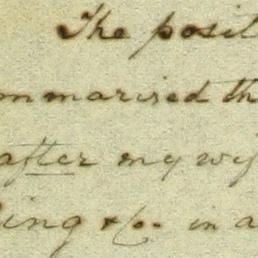 The posit
mmarised th
after my wif
ing & Co. in a